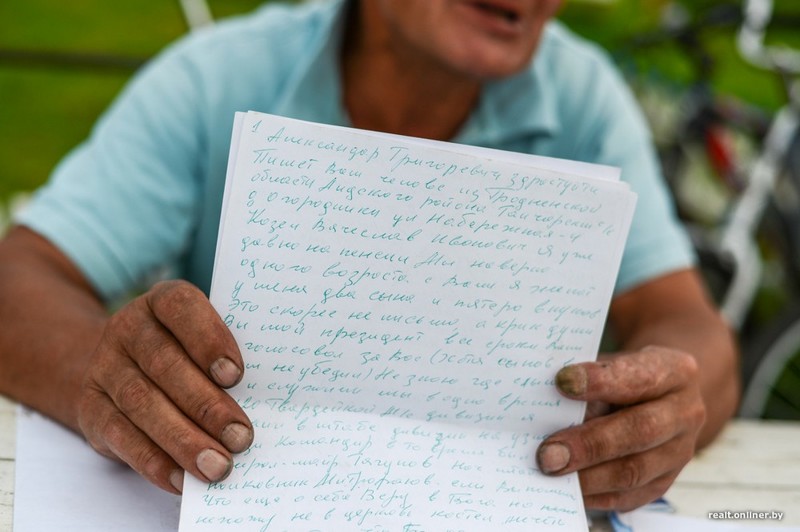 1 Александр Григоревич здраствуйте
Пишет Вам человек из Гродненской
области Лидского района
д Огородники ул Набережная-4
Козел Вячеслав Иванович Я уже
давно на пенсии Мы наверно
одного возраста с Вами Я женат
у меня два сына и пятеро внуков
Это скорее не письмо а крик души
Вы мой президент все сроки Вам
голосовал за Вас (хотя сынов
не убедил) Не знаю где
и служили мы в одно время
Гвардейской дивизии я
в штабе дивизии на
командир в то время был
майор Тагунов нач
полковник Митрофанов если Вы помните
Что еще о себе Верю в Бога но не
хожу не в церковь костел мечеть
realt.onliner.by